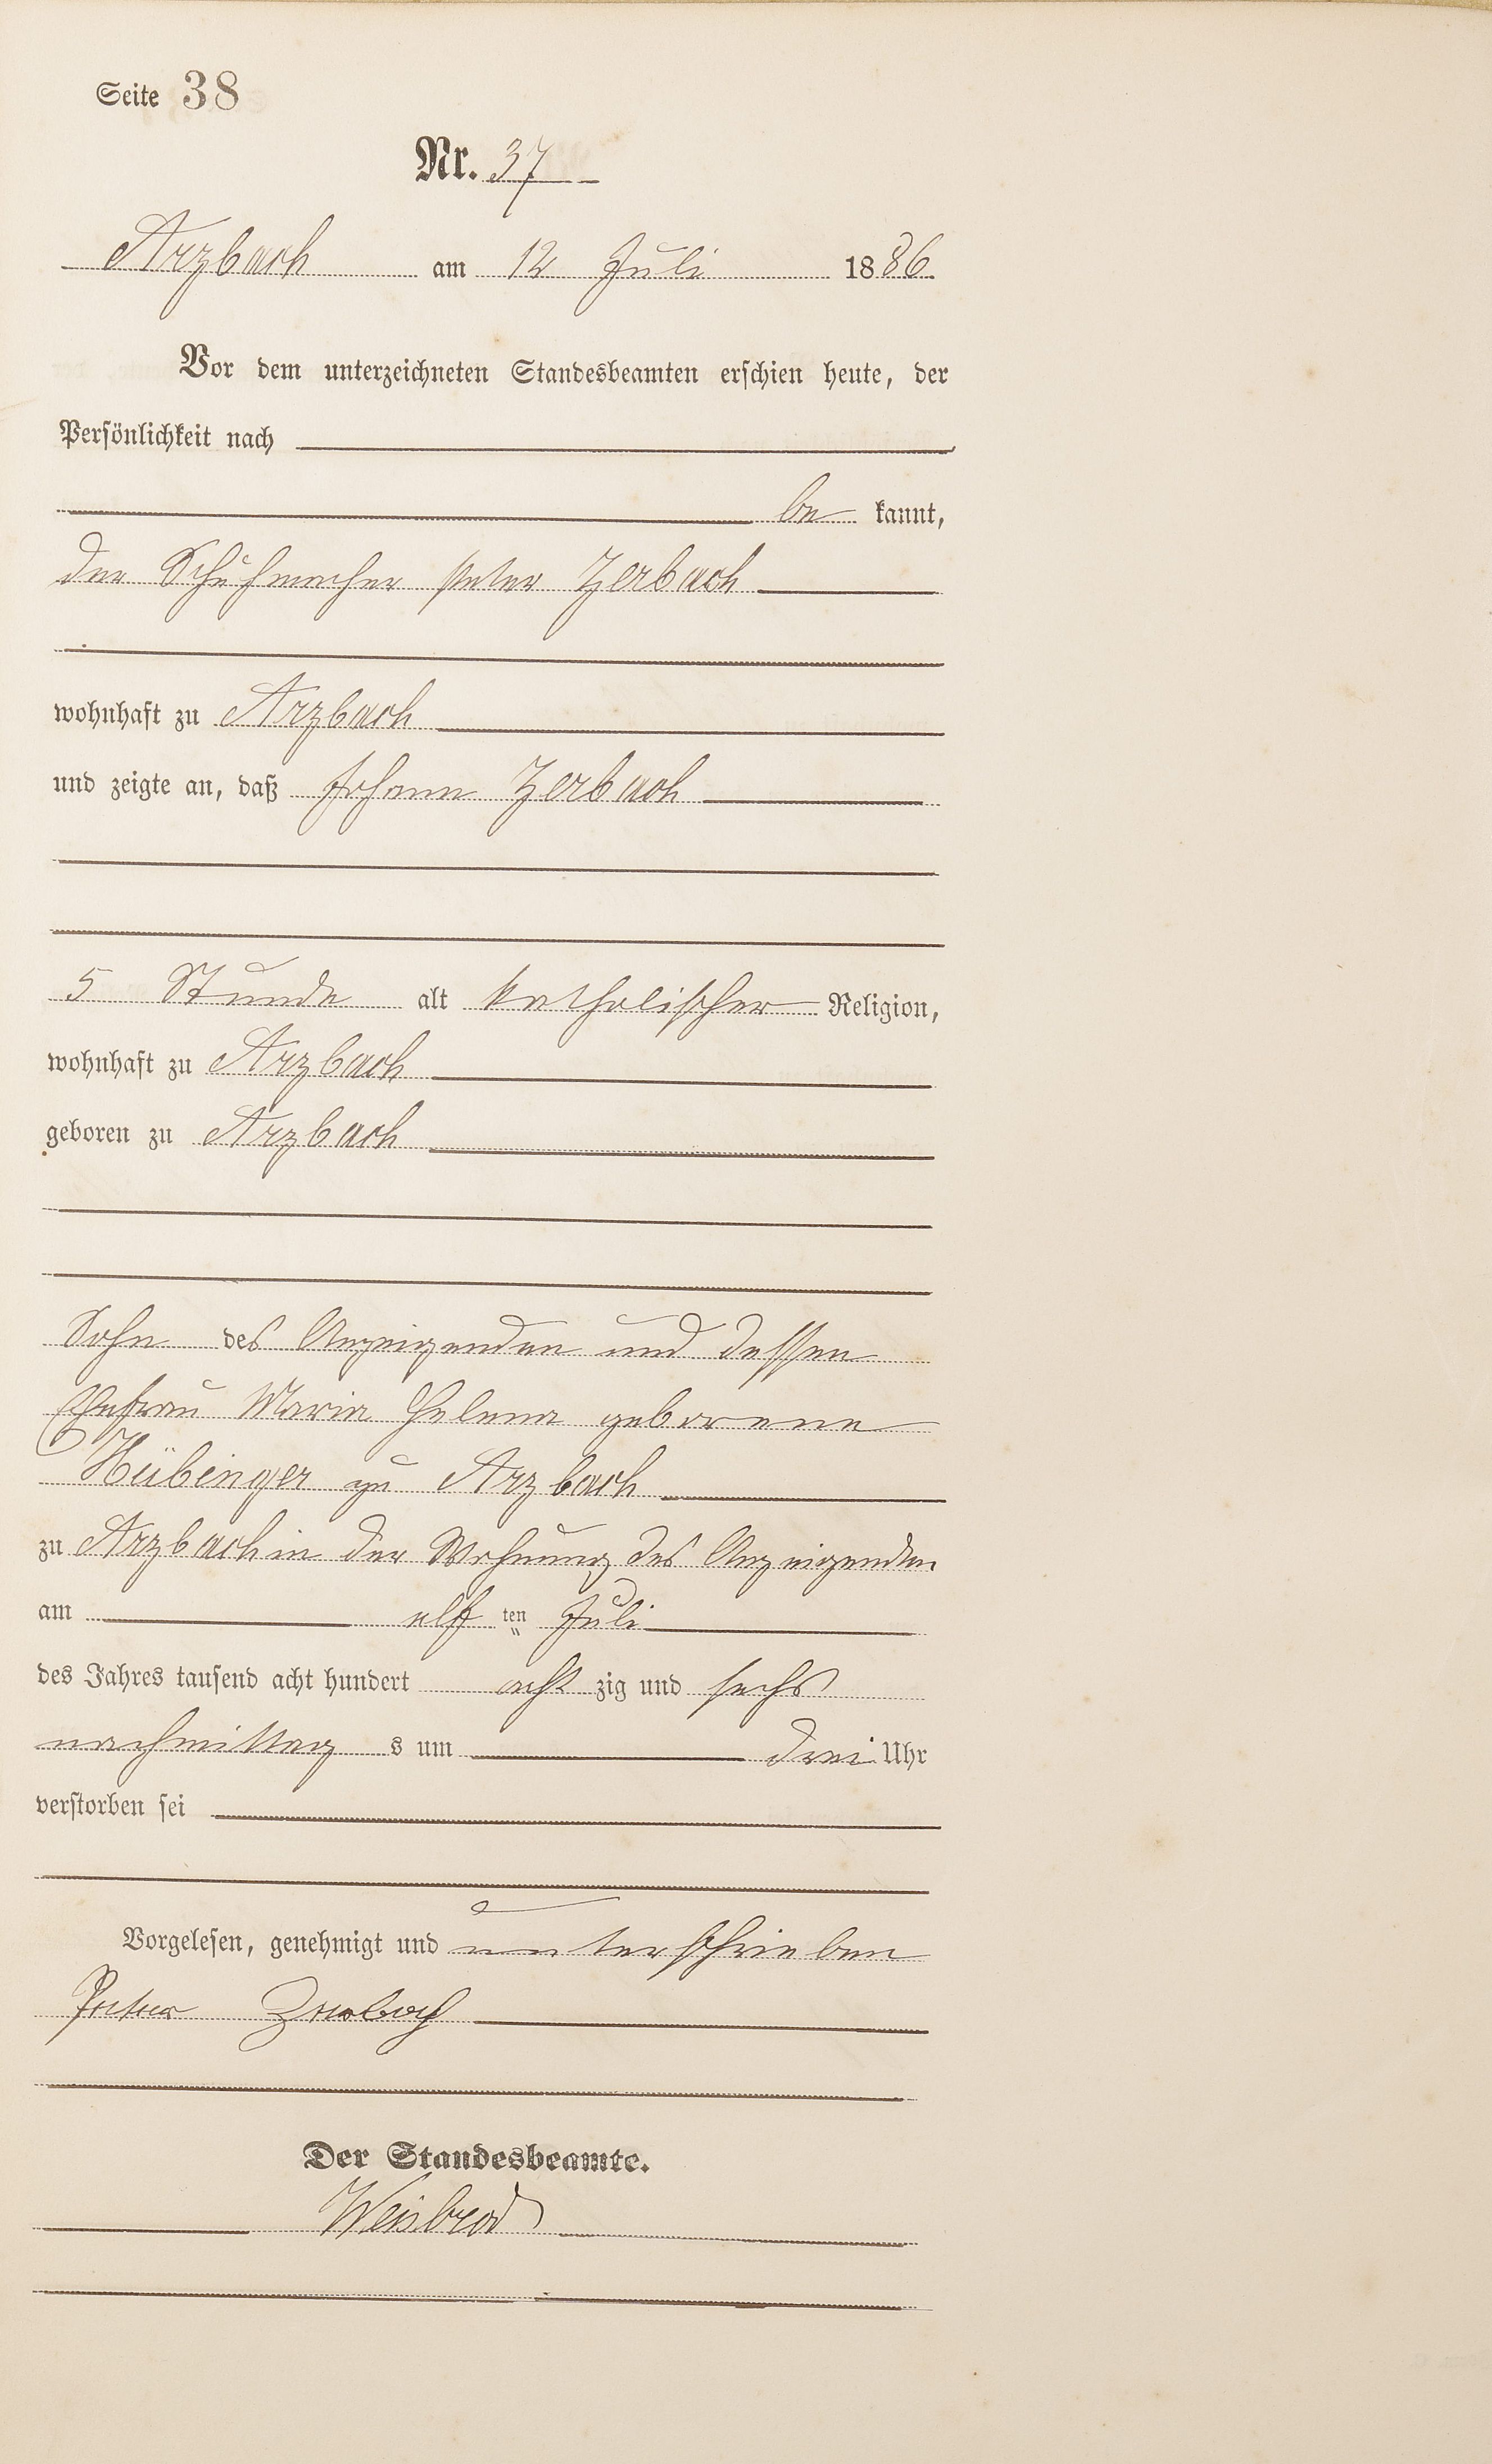 Seite 38
Nr. 37
Arzbach am 12 Juli 1886
Vor dem unterzeichneten Standesbeamten erschien heute, der
Persönlichkeit nach
be kannt,
der Schuhmacher Peter Zerbach
wohnhaft zu Arzbach
und zeigte an, daß Johann Zerbach
5 Stunde alt katholischer Religion,
wohnhaft zu Arzbach
geboren zu Arzbach
Sohn des Anzeigenden und dessen
Ehefrau Maria Helena geborene
Hübinger zu Arzbach
zu Arzbach in der Wohnung des Anzeigenden
am elf ten Juli
des Jahres tausend acht hundert acht zig und sechs
nachmittag s um drei Uhr
verstorben sei
Vorgelesen, genehmigt und unterschrieben
Peter Zerbach
Der Standesbeamte.
Weisbrod